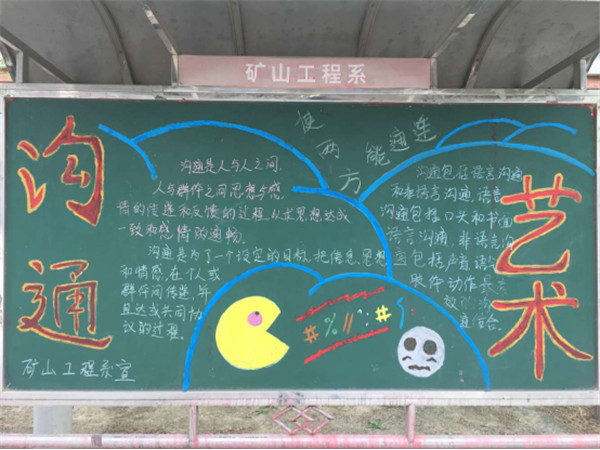 矿山工程系
沟通
艺术
使两方能通连
沟通是人与人之间,
人与群体之间思想与感
情的传递和反馈的过程,从求思想达成
一致和感情的通畅。
沟通是为了一个设定的目标,把信息、思想
和情感,在个人或
群体间传递,并
且达成共同协
议的过程。
沟通包括语言沟通
和非语言沟通,语言
沟通包括口头和书面
语言沟通,非语言沟
通包括声音语气
肢体动作
效
通结合。
#%//:*#
矿山工程系宣